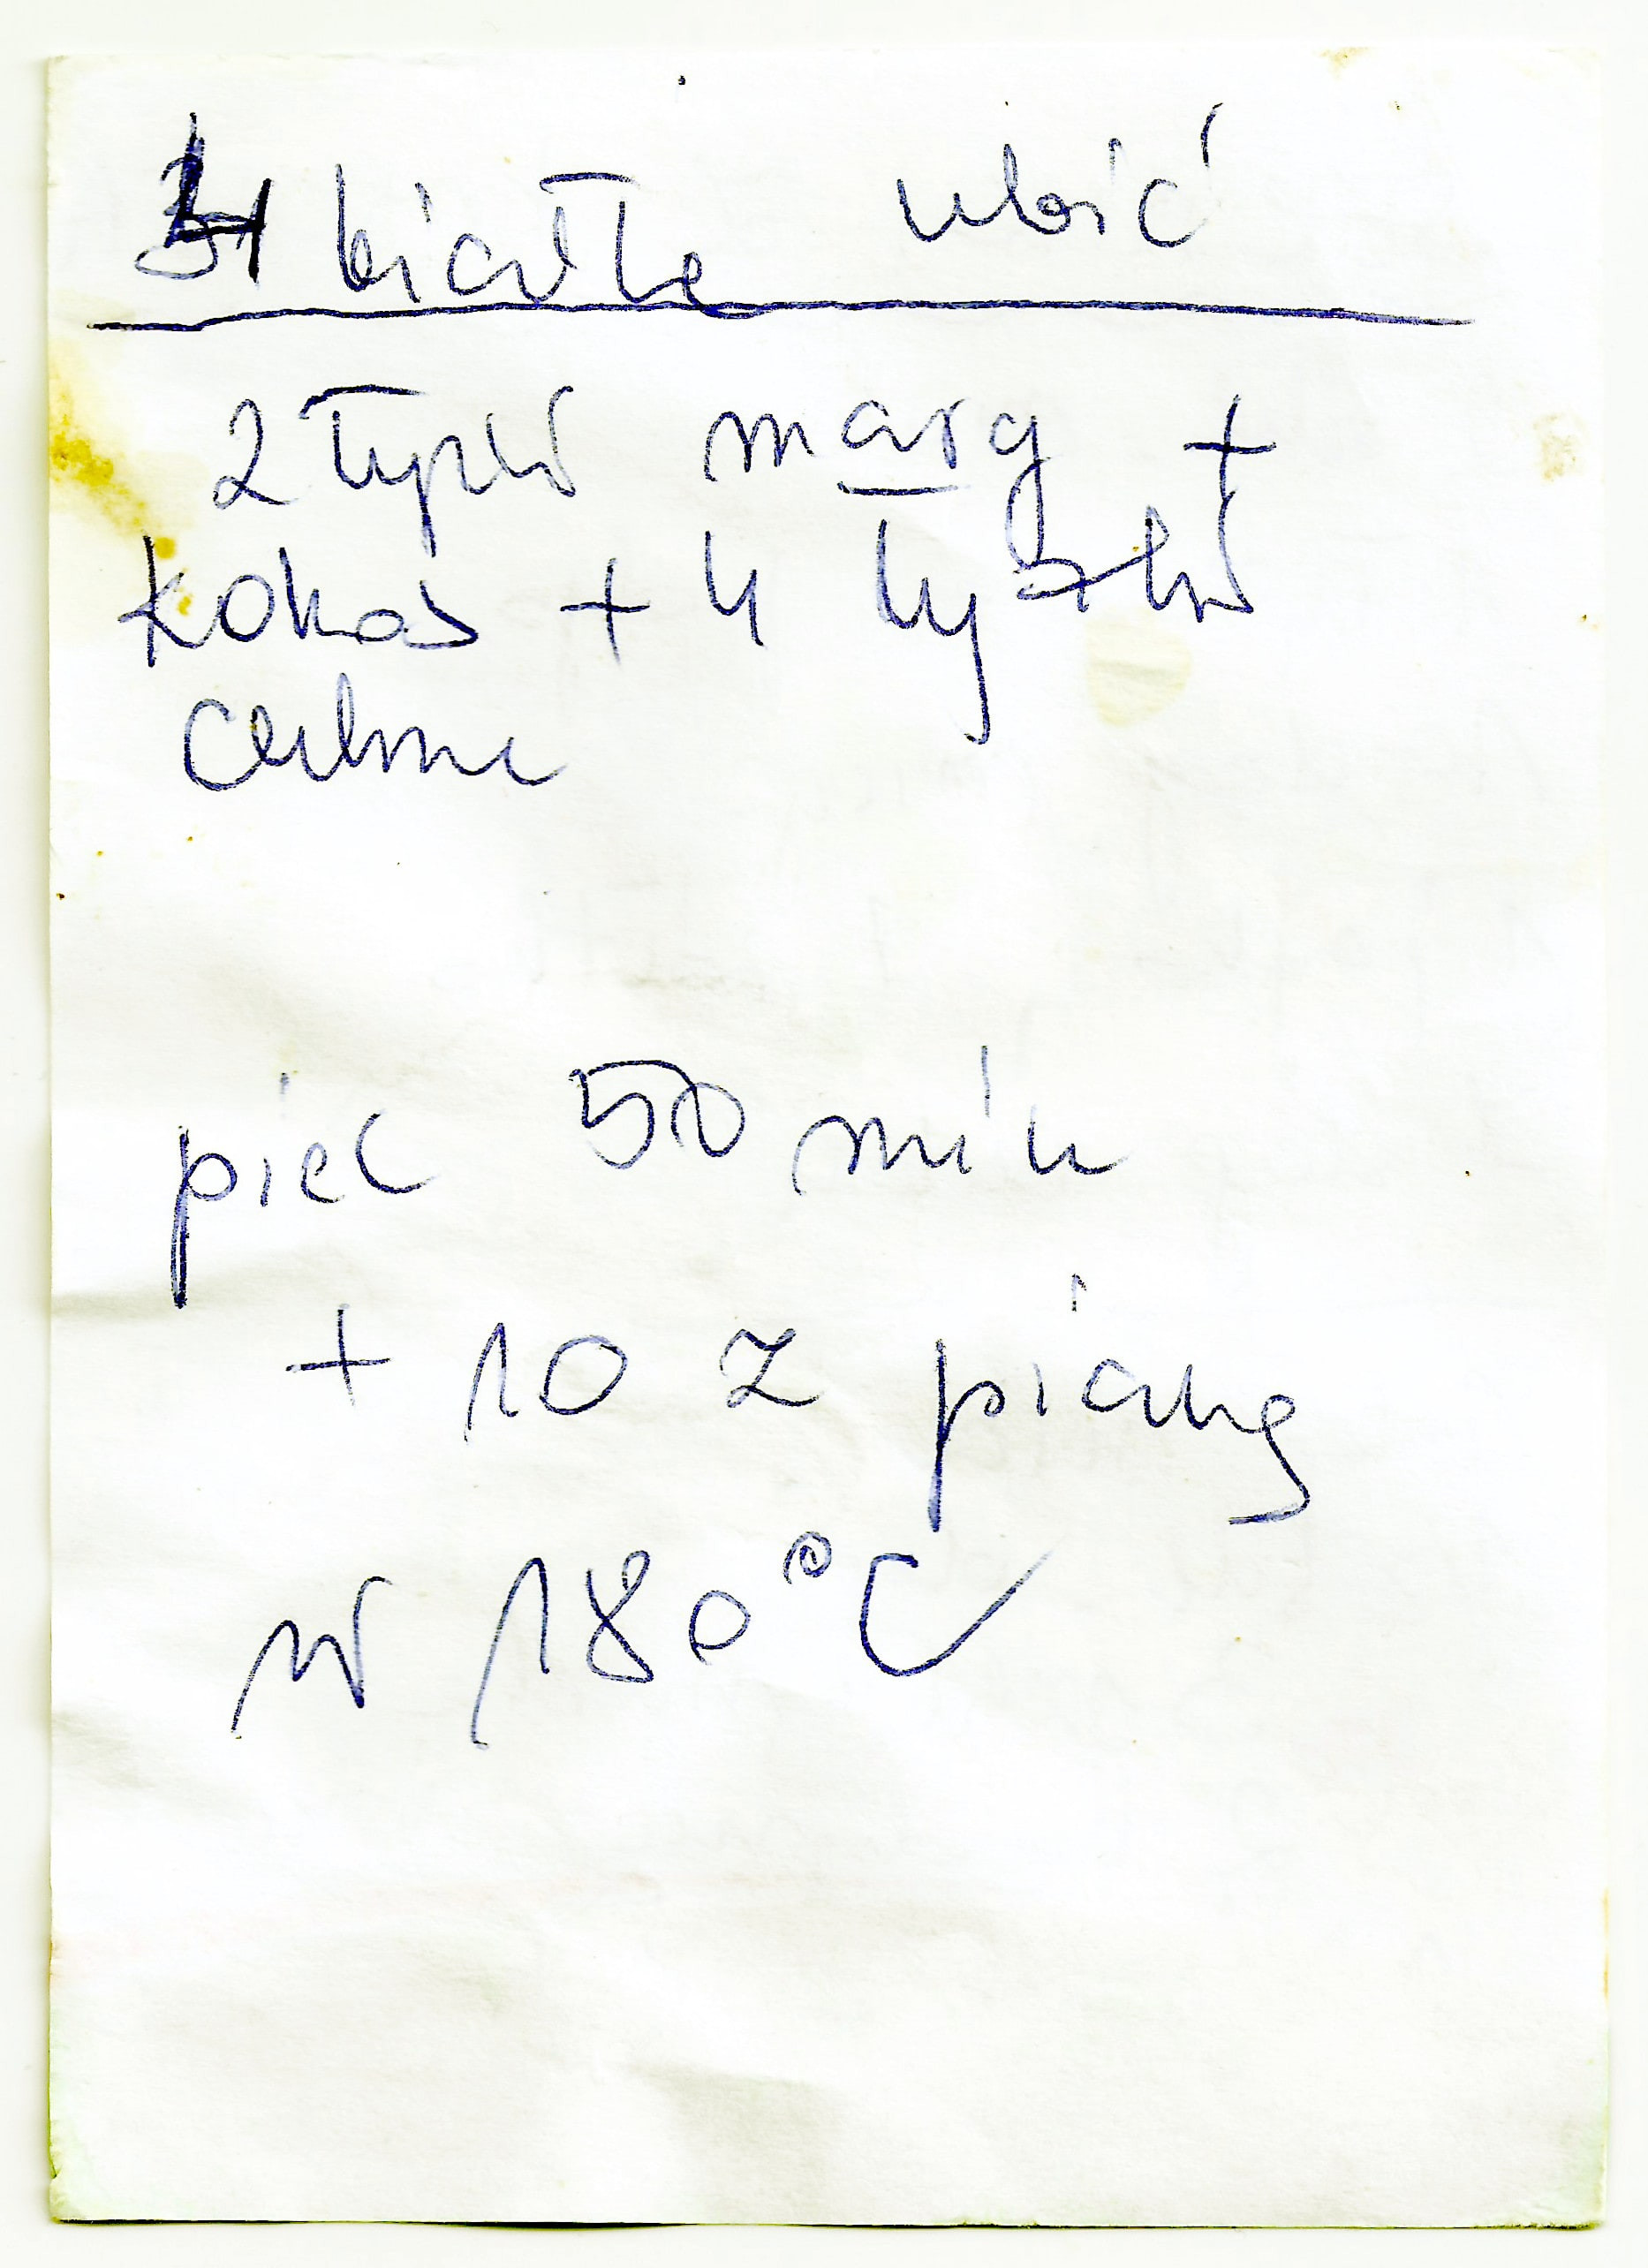 4 białka ubić
2 łyżki marg +
kokos + 4 łyżki
cukru
piec 50 min
+ 10 z pianą
w 180°C